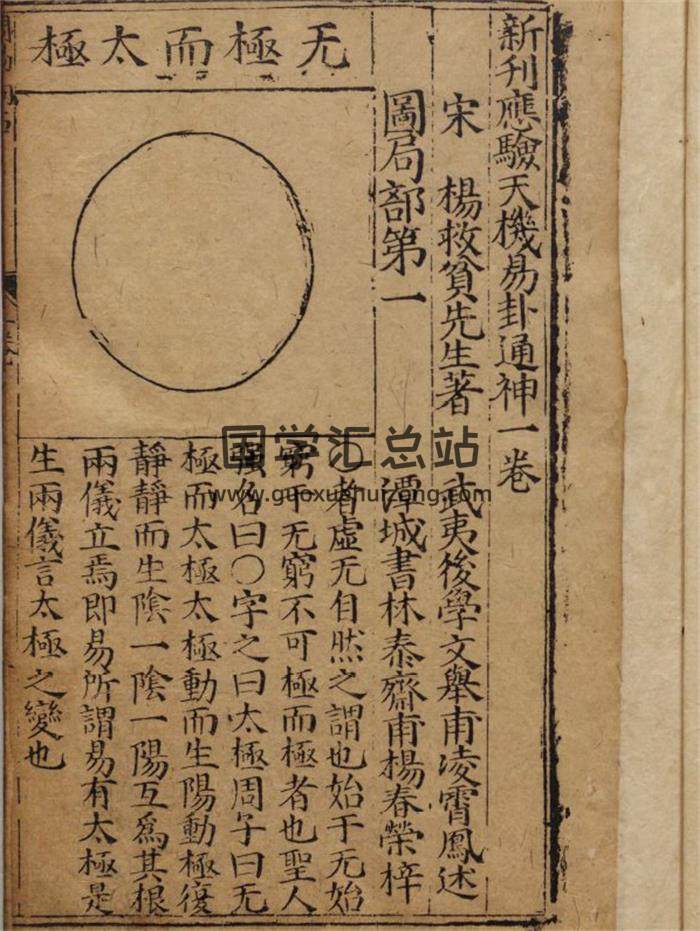 新刊應驗天機易卦通神一卷
宋 楊救貧先生著 武夷後學文舉甫凌霄鳳述
圖局部第一 潭城書林泰齋甫楊春榮梓
无極而太極
〇者虛无自然之謂也始于无始
窮于无窮不可極而極者也聖人
強名曰〇字之曰太極周子曰无
極而太極太極動而生陽動極復
靜靜而生陰一陰一陽互爲其根
兩儀立焉即易所謂易有太極是
生兩儀言太極之變也
国学汇总站
www.guoxuehuizong.com